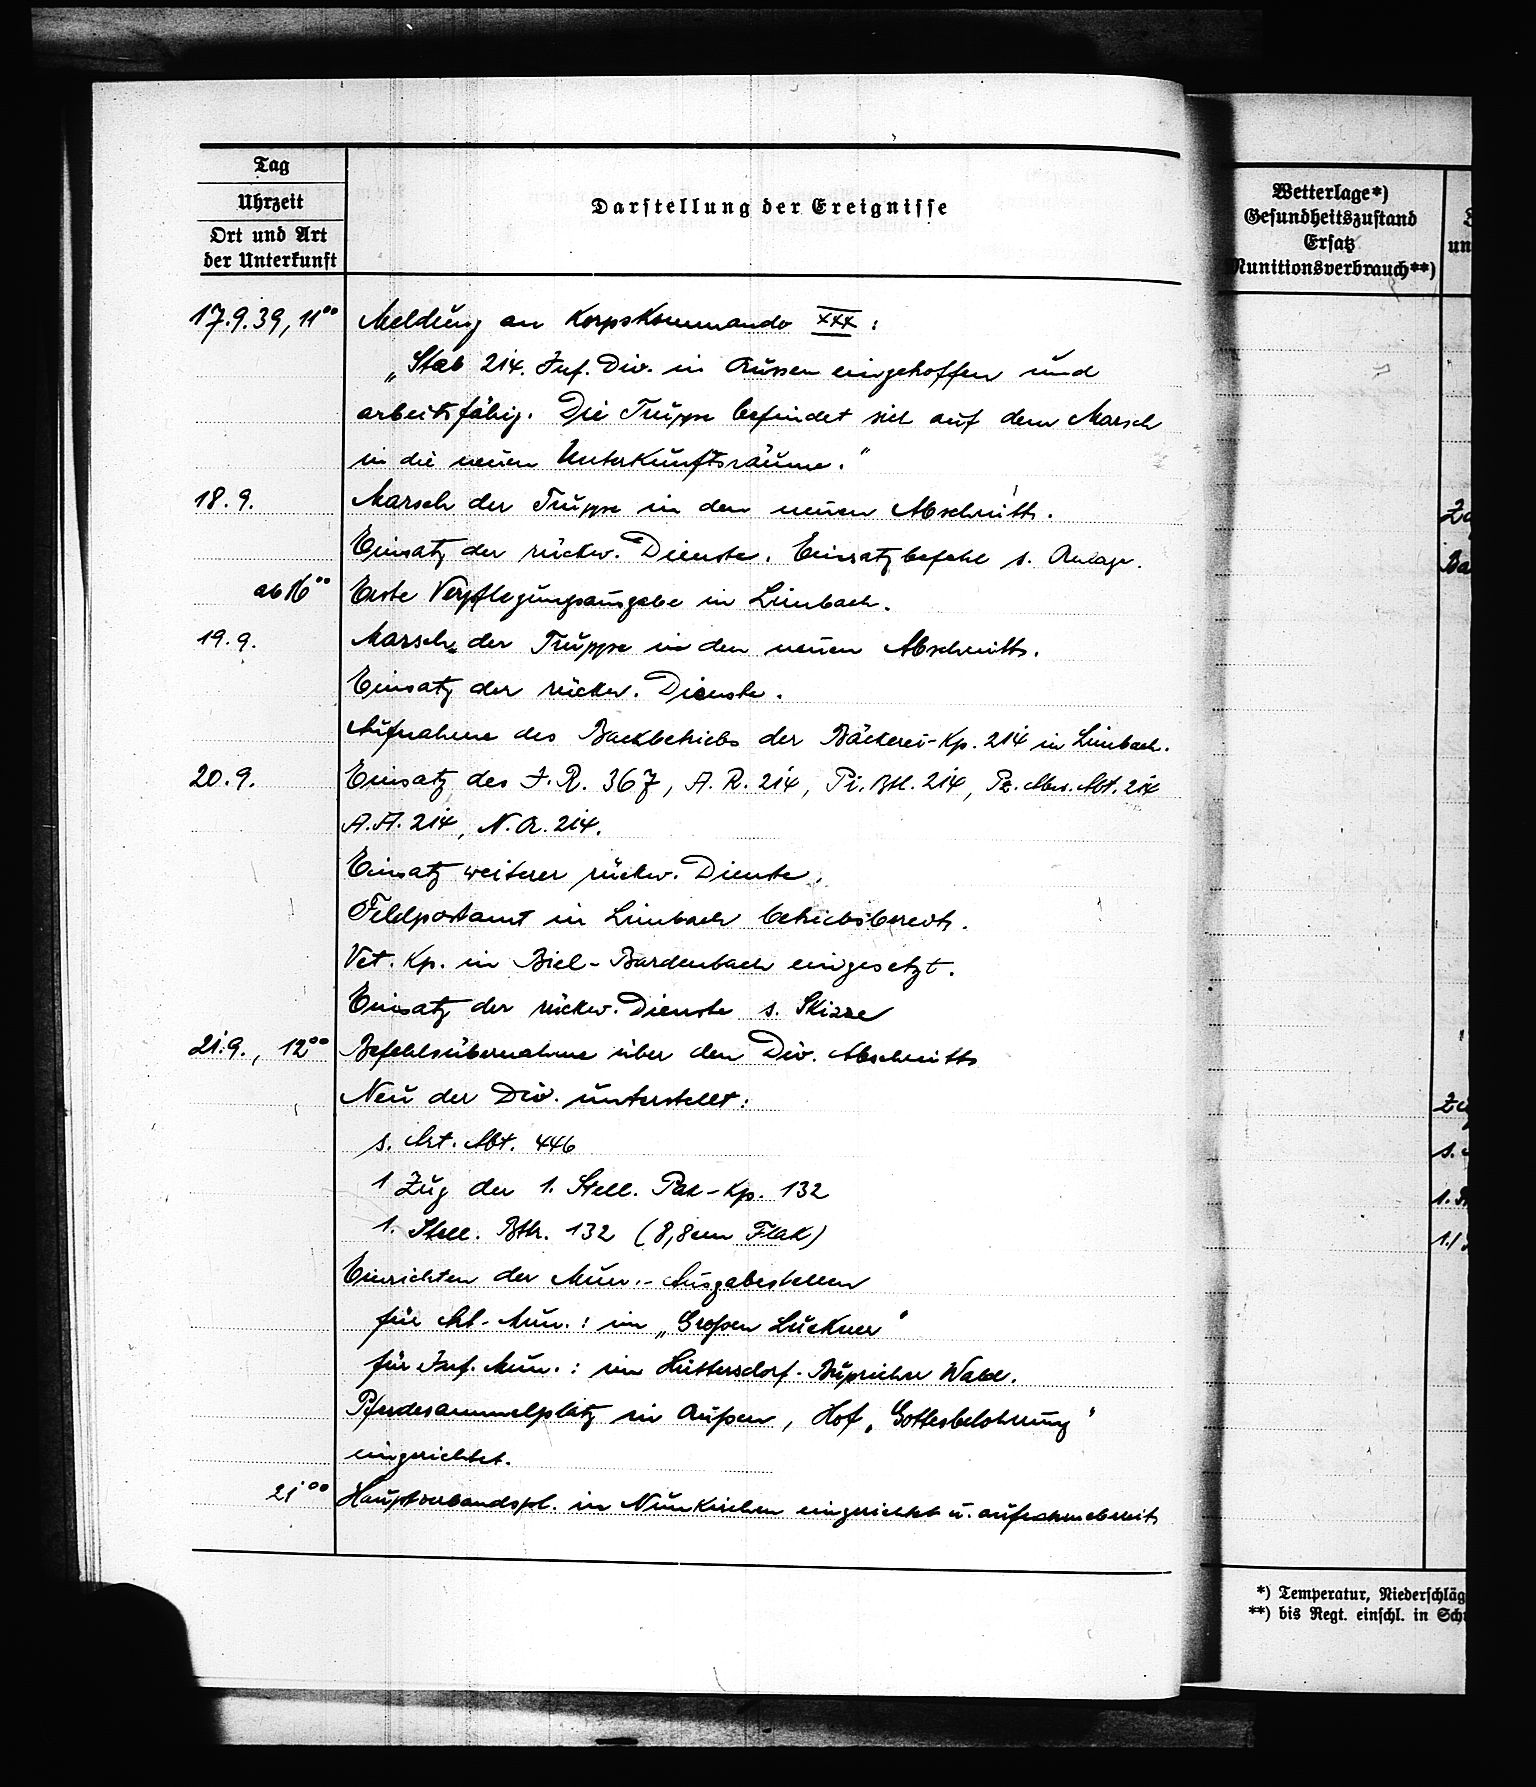 Tag
Uhrzeit
Ort und Art
der Unterkunft
Darstellung der Ereignisse
17.9.39, 11⁰⁰ Meldung an Korpskommando XXX :
„Stab 214. Inf. Div. in Aussen eingetroffen und
arbeitsfähig. Die Truppe befindet sich auf dem Marsch
in die neuen Unterkunftsräume."
18.9. Marsch der Truppe in den neuen Abschnitt.
Einsatz der rückw. Dienste. Einsatzbefehl s. Anlage.
ab 16⁰⁰ Erste Verpflegungsausgabe in Limbach.
19.9. Marsch der Truppe in den neuen Abschnitt.
Einsatz der rückw. Dienste.
Aufnahme des Backbetriebs der Bäckerei-Kp. 214 in Limbach.
20.9. Einsatz des I.R. 367, A.R. 214, Pi. Btl. 214, Pz. Abw. Abt. 214
A.A. 214, N.A. 214.
Einsatz weiterer rückw. Dienste.
Feldpostamt in Limbach betriebsbereit.
Vet. Kp. in Biel-Bardenbach eingesetzt.
Einsatz der rückw. Dienste s. Skizze
21.9., 12⁰⁰ Befehlsübernahme über den Div. Abschnitt
Neu der Div. unterstellt:
s. Art. Abt. 446
1 Zug der 1. Stell. Pak-Kp. 132
1. Stell. Bttr. 132 (8,8cm Flak)
Einrichten der Mun.-Ausgabestellen
für Art.-Mun.: im „Großen Lückner"
für Inf. Mun.: im Hüttersdorf-Bupricher Wald.
Pferdesammelplatz in Außen, Hof „Gottesbelohnung"
eingerichtet.
21⁰⁰ Hauptverbandspl. in Nunkirchen eingerichtet u. aufnahmebereit
Wetterlage*)
Gesundheitszustand
Ersatz
Munitionsverbrauch**)
un
*) Temperatur, Niederschläg
**) bis Regt. einschl. in Sch